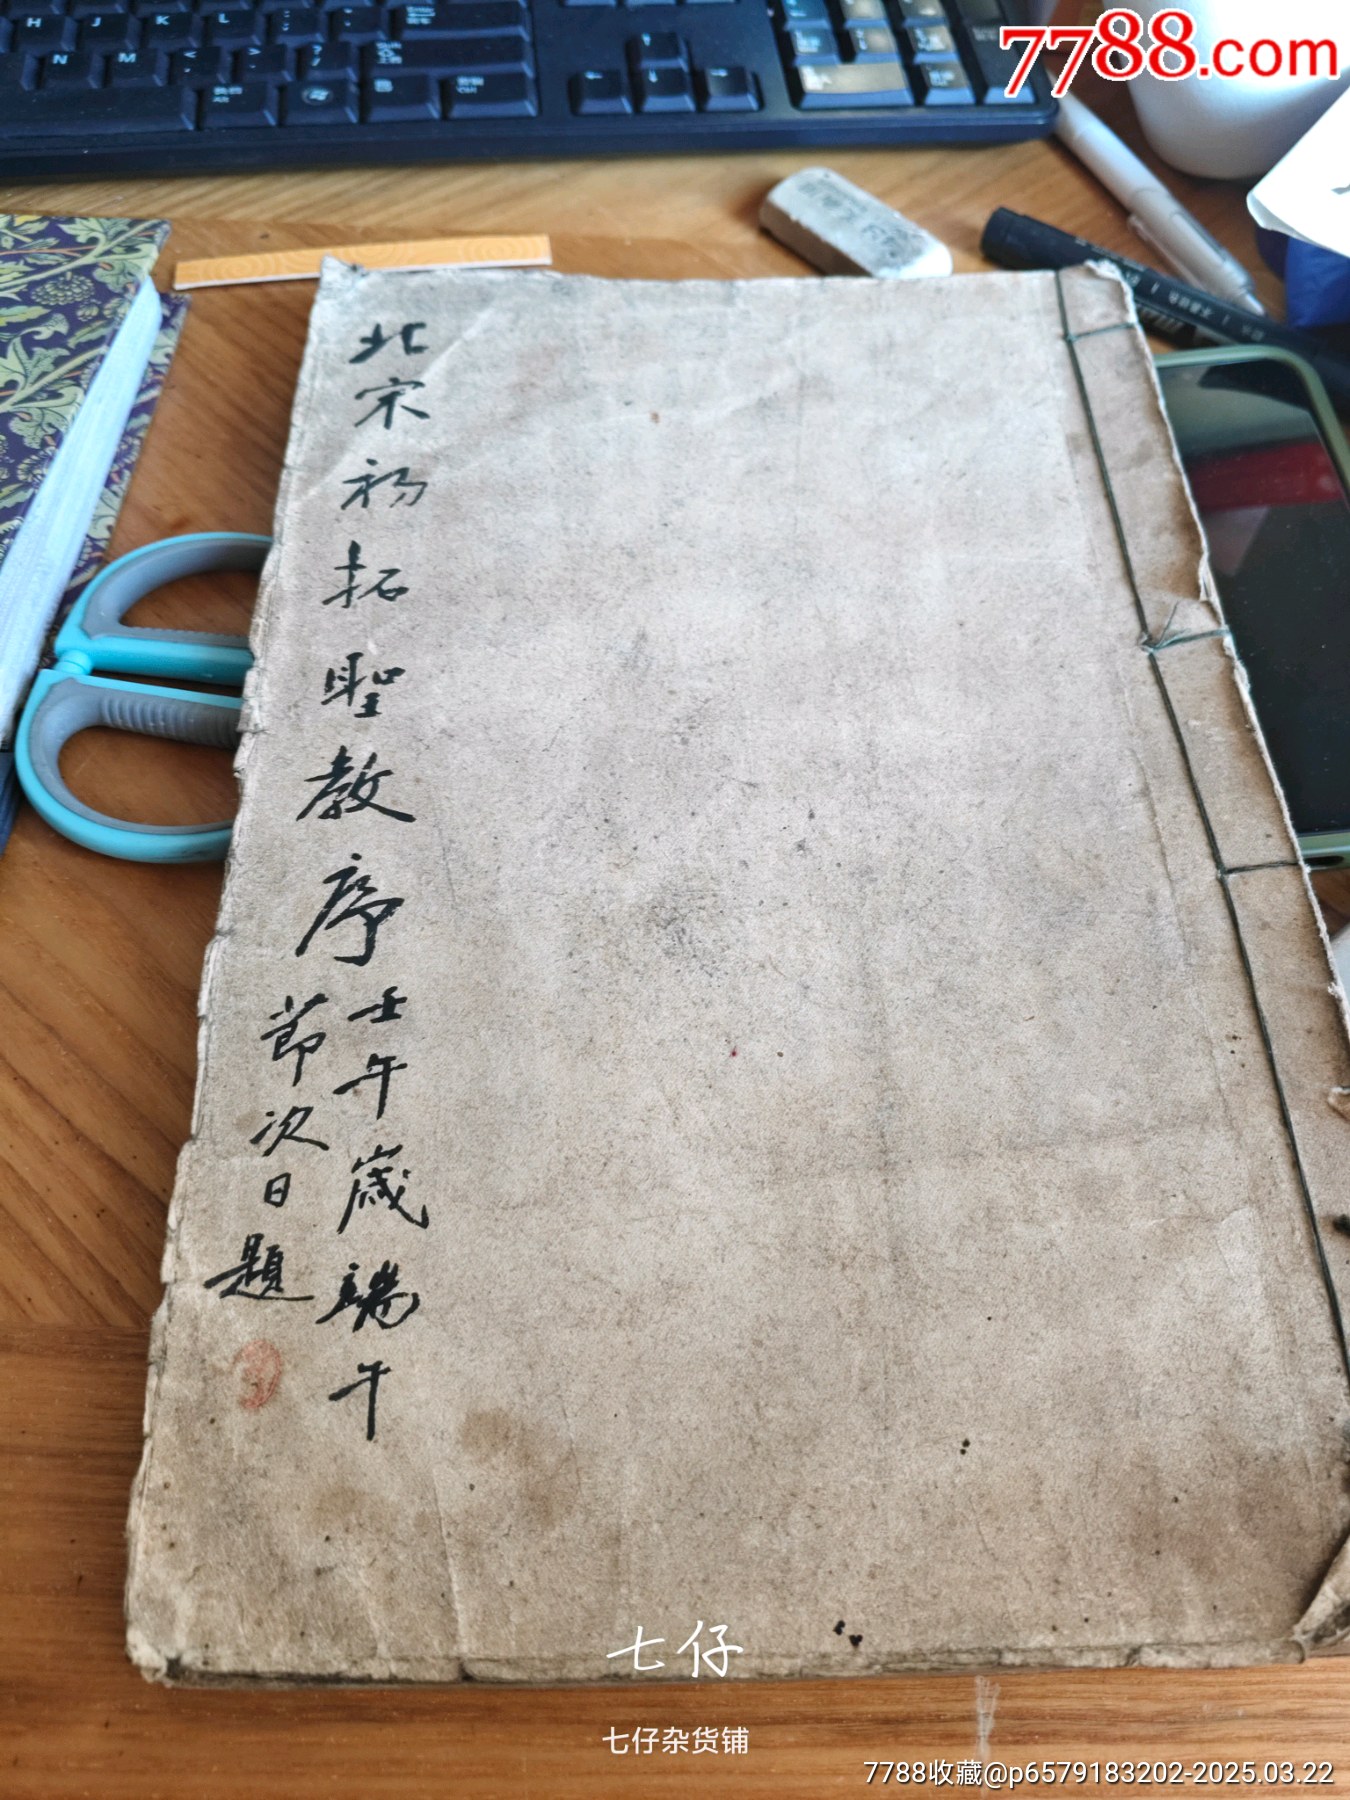 7788.com
H J K L
N M
北宋初拓聖教序
壬午歲端午
節次日題
七仔
七仔杂货铺
7788收藏@p6579183202-2025.03.22